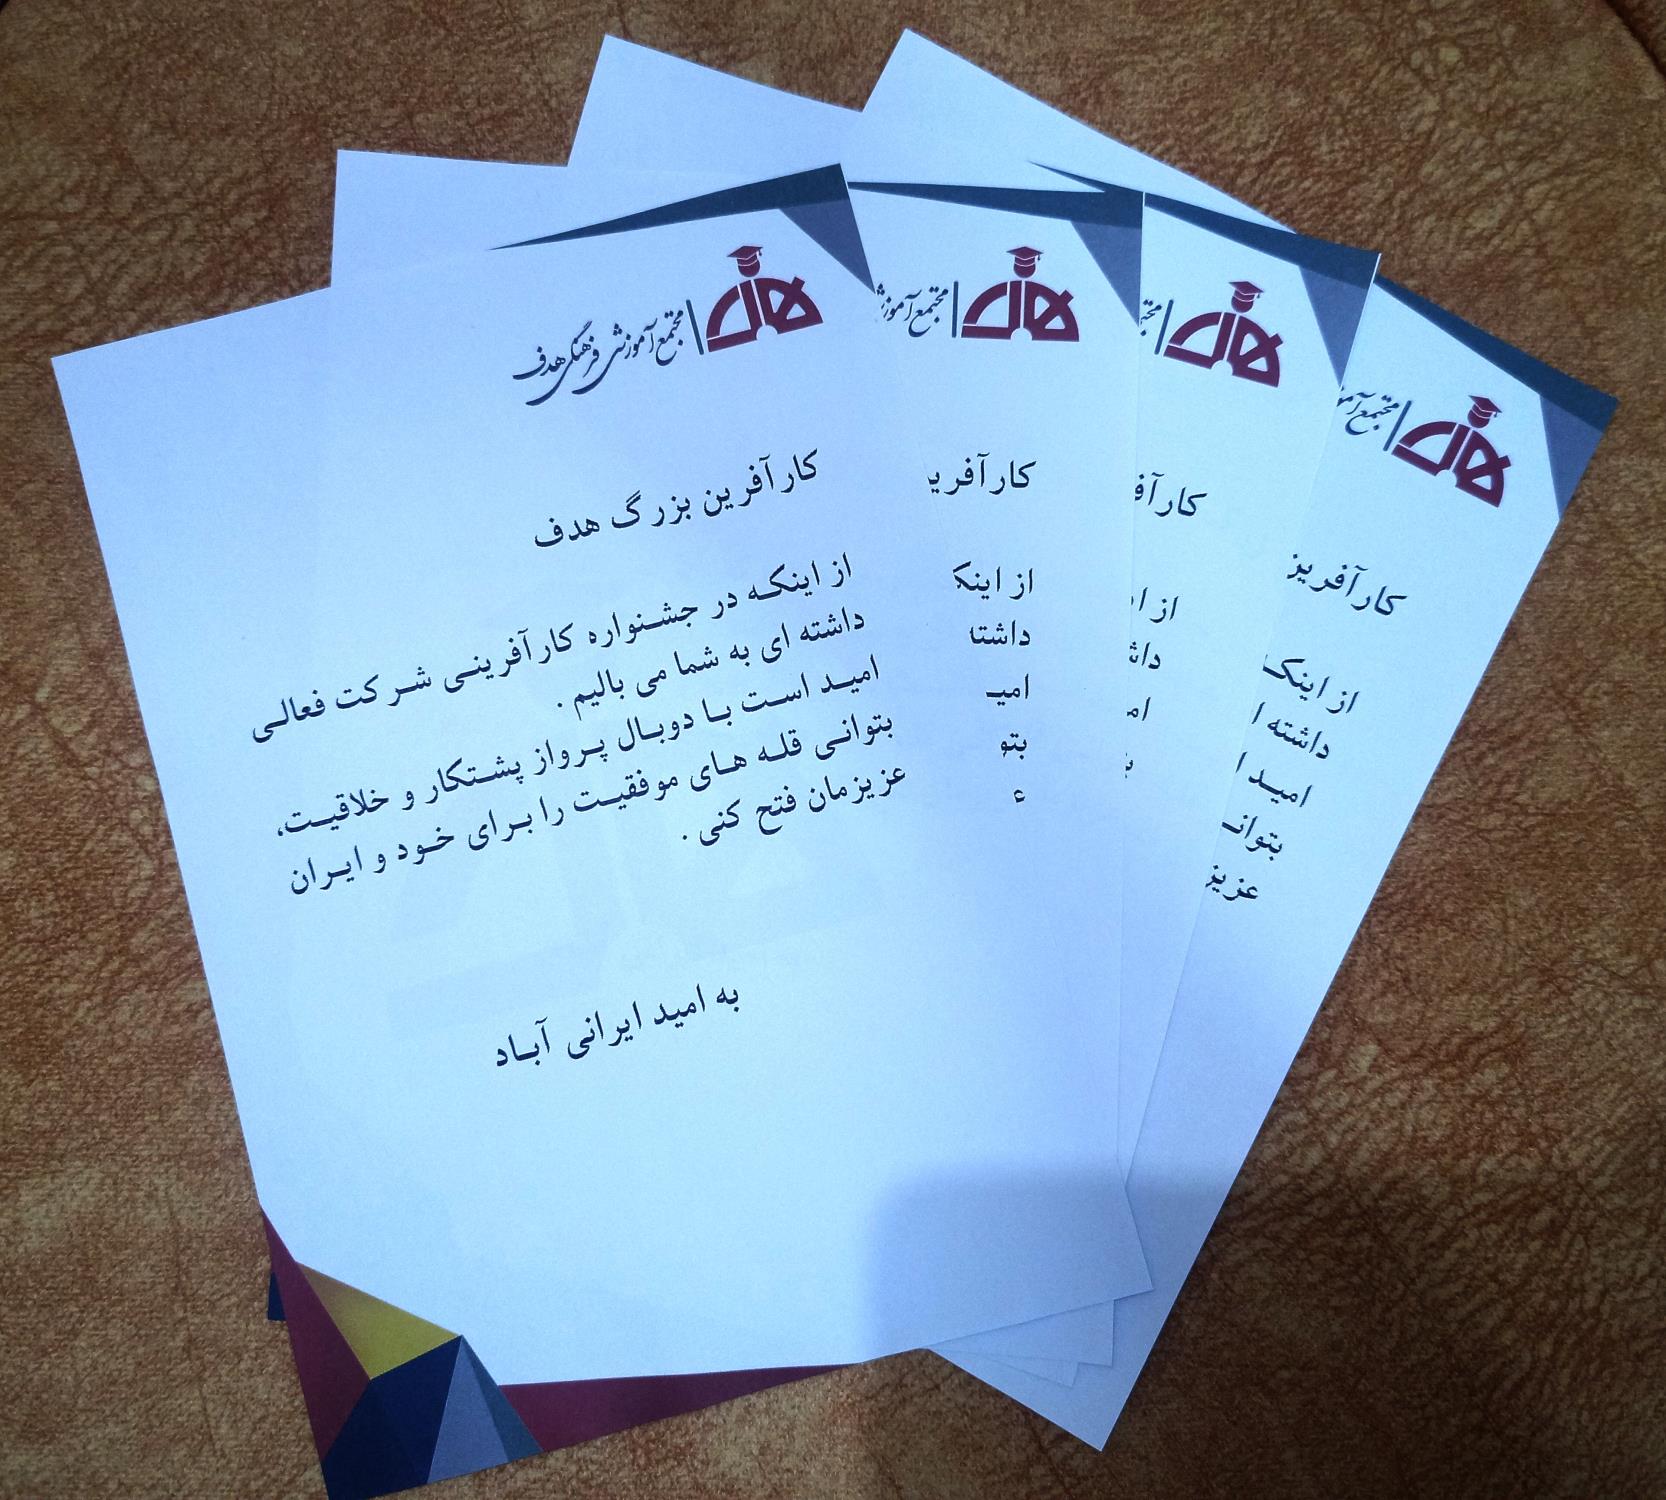 هدف
مجتمع آموزشی فرهنگی هدف
کارآفرین بزرگ هدف
از اینکه در جشنواره کارآفرینی شرکت فعالی
داشته ای به شما می بالیم .
امید است با دوبال پرواز پشتکار و خلاقیت،
بتوانی قله های موفقیت را برای خود و ایران
عزیزمان فتح کنی .
به امید ایرانی آباد
هدف
مجتمع آموزش
کارآفری
از اینک
داشتا
امی
بتو
ع
هدف
کارآف
از ا
دا
ام
هدف
مجتمع
کارآفری
از اینک
داشته ا
امید ا
بتوان
عزیز